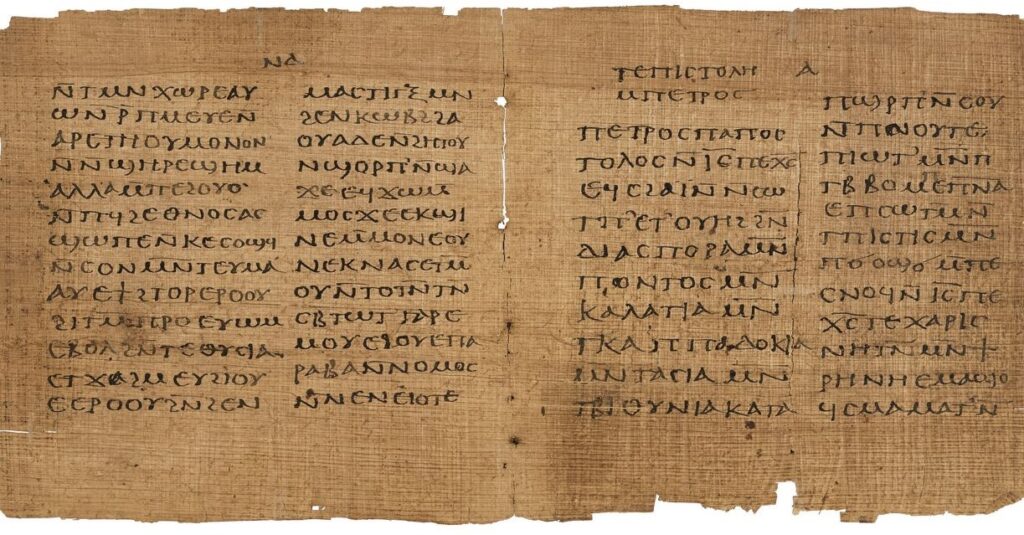 ⲛⲁ
ⲛ̄ⲧⲙⲛⲭⲱⲣⲉⲁⲩ
ⲱⲛⲣ̄ⲡⲙⲉⲩⲉⲛ
ⲁⲣⲉⲧⲏⲟⲩⲙⲟⲛⲟⲛ
ⲛⲛϣⲏⲣⲉϣⲏⲙ
ⲁⲗⲗⲁⲙⲡⲉϩⲟⲩⲟ
ⲛ̄ⲡϥϩⲉⲑⲛⲟⲥⲁⲥ
ϣⲱⲡⲉⲛ̄ⲕⲉⲥⲟⲡϥ
ⲛⲉⲟⲛⲙⲛ̄ⲧⲉⲩⲙⲁ
ⲁⲩⲉϯϩⲧⲟⲣⲉⲣⲟⲟⲩ
ϩⲓⲧⲙ̄ⲡⲣⲟⲉⲩⲱⲙ
ⲉⲃⲟⲗϩⲛⲧⲉⲑⲩⲥⲓⲁ
ⲉⲧϫⲁϩⲙⲉⲩϩⲓⲟⲩ
ⲉⲉⲣⲟⲟⲩϩⲛϩⲉⲛ
ⲙⲁⲥⲧⲓⲅⲝⲙⲛ
ϩⲉⲛⲕⲱⲃϩϩⲁ
ⲟⲩⲁⲇⲉⲛϩⲏⲧⲟⲩ
ⲛϣⲟⲣⲡⲛ̄ϣⲁ
ϫⲉⲉϥϫⲱⲙ
ⲙⲟⲥϫⲉⲉⲕϣⲓ
ⲛⲉⲙ̄ⲙⲟⲛⲉⲟⲩ
ⲛⲉⲕⲛⲁⲥⲉⲧⲙ̄
ⲟⲩⲛ̄ⲧⲟⲧⲛⲧⲛ
ⲥⲃⲧⲱⲧⲅⲁⲣⲉ
ⲙⲟⲩⲉϩⲟⲩⲉⲡⲁ
ⲣⲁⲃⲁⲛⲛⲟⲙⲟⲥ
ⲛ̄ⲛⲉⲛⲉⲓⲟⲧⲉ
ⲧⲉⲡⲓⲥⲧⲟⲗⲏ ⲁ
ⲙⲡⲉⲧⲣⲟⲥ
ⲡⲉⲧⲣⲟⲥⲡⲁⲡⲟⲥ
ⲧⲟⲗⲟⲥⲛ̄ⲓ̄ⲥ̄ⲡⲉⲭ̄ⲥ̄
ⲉϥⲥϩⲁⲓⲛⲛⲥⲱ
ⲧⲡⲉⲧⲟⲩⲏϩϩⲛ
ⲇⲓⲁⲥⲡⲟⲣⲁⲙⲛ
ⲡⲡⲟⲛⲧⲟⲥⲙ̄ⲛ
ⲕⲁⲗⲁⲧⲓⲁⲙ̄ⲛ̄
ⲧⲕⲁⲡⲡⲁⲇⲟⲕⲓⲁ
ⲙⲛⲧⲁⲥⲓⲁⲙⲛ̄
ⲧⲃⲓⲑⲩⲛⲓⲁⲕⲁⲧⲁ
ⲡϣⲣⲡ̄ⲛ̄ⲥⲟⲩ
ⲛ̄ⲡⲛⲟⲩⲧⲉ
ⲡⲓⲱⲧⲙⲛ̄ⲡ
ⲧⲃⲃⲟⲙⲡⲉⲡ̄ⲛ̄ⲁ
ⲉⲡⲥⲱⲧⲙⲛ̄
ⲧⲡⲓⲥⲧⲓⲥⲙⲛ
ⲡϭⲟϣϭϣ︤ⲙ̄ⲡⲉ
ⲥⲛⲟϥⲛ̄ⲓ̄ⲥ̄ⲡⲉ
ⲭ̄ⲥ̄ⲧⲉⲭⲁⲣⲓⲥ
ⲛⲏⲧⲛ̄ⲙⲛϯ
ⲣⲏⲛⲏⲉⲙⲁϣⲟ
ϥⲥⲙⲁⲙⲁⲧⲛ̄